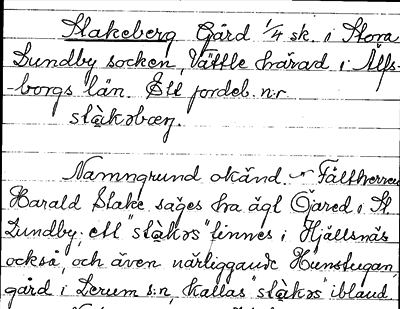 Stakeberg Gård 1/4 sk. i Stora
Lundby socken, Vättle härad i Älfs-
-borgs län. Ett jordeb. n:r
stàkəbœrj.
Namngrund okänd. Fältherren
Harald Stake säges ha ägt Öjared i St.
Lundby; ett "stàkəs" finnes i Hjällsnäs
också, och även närliggande Hunstugan,
gård i Lerum s:n, kallas "stàkəs" ibland.